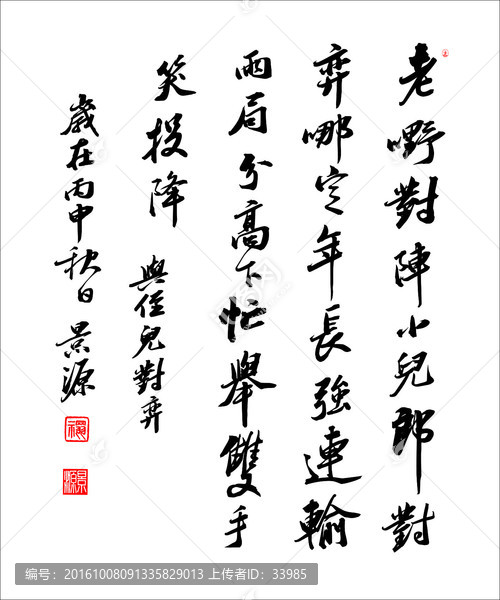 老嘢對陣小兒郎對
弈哪定年長強連輸
兩局分高下忙舉雙手
笑投降
與侄兒對弈
歲在丙申秋日 景源
编号：20161008091335829013 上传者ID：33985